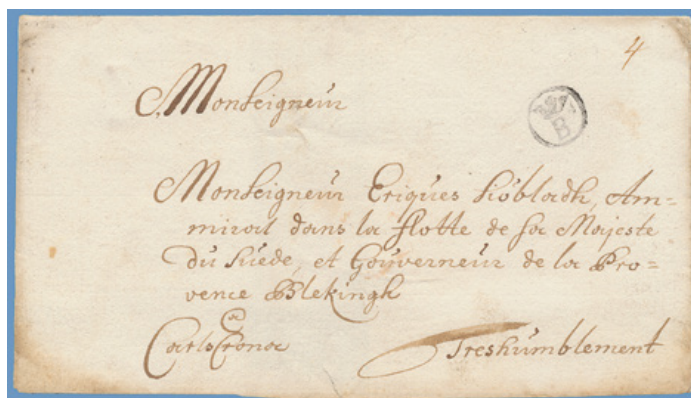 4
Monseigneur
B
Monseigneur Eriques Siöbladh, Am=
miral dans la flotte de sa Majeste
du Suede, et Gouverneur de la Pro=
vence Blekingh
a
Carlscrona
Treshumblement